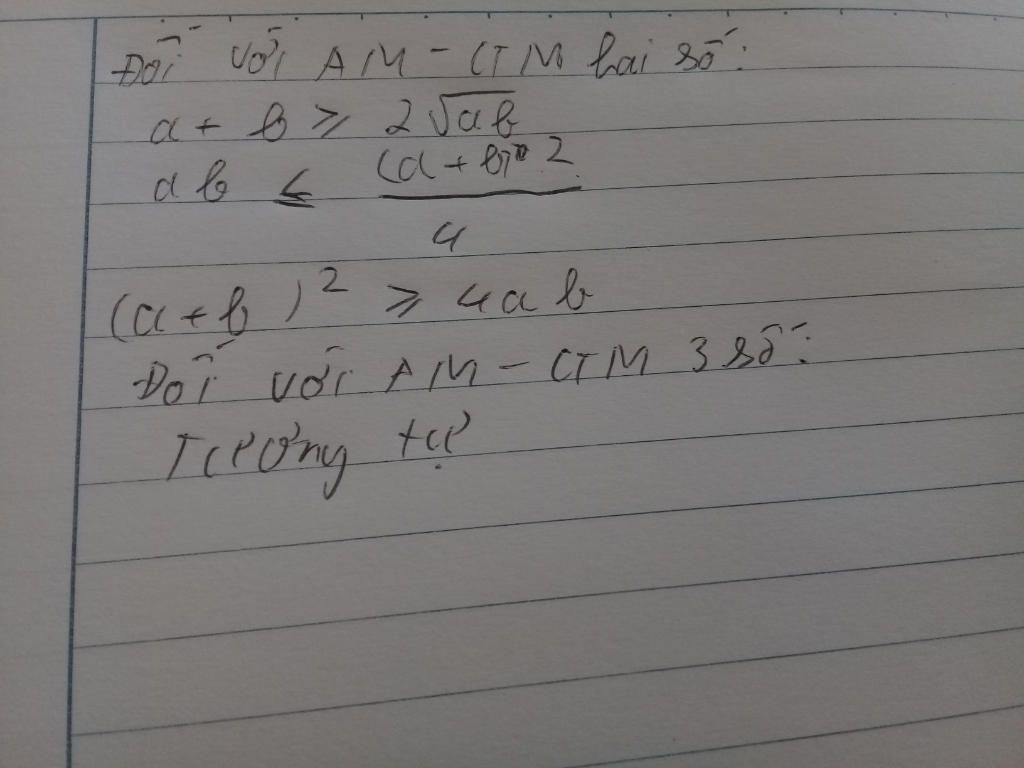 Đối với AM - GM hai số:
a + b ≥ 2√ab
ab ≤ (a + b)^2 / 4
(a + b)² ≥ 4ab
Đối với AM - GM 3 số:
Tương tự